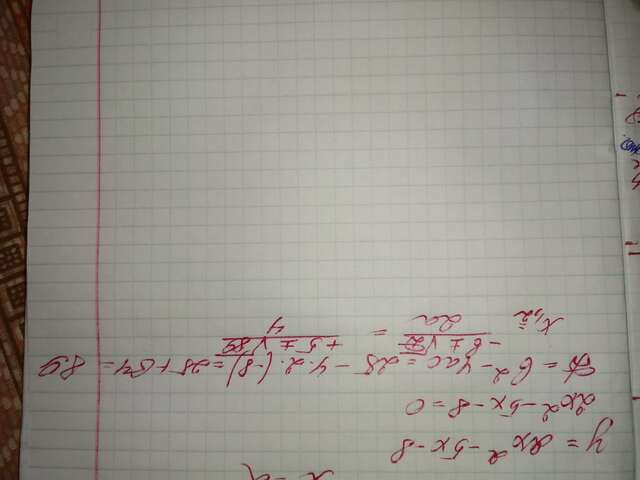 y = 2x² - 5x - 8
2x² - 5x - 8 = 0
D = b² - 4ac = 25 - 4·2·(-8) = 25 + 64 = 89
x₁,₂ = (-b ± √D)/2a = (+5 ± √89)/4